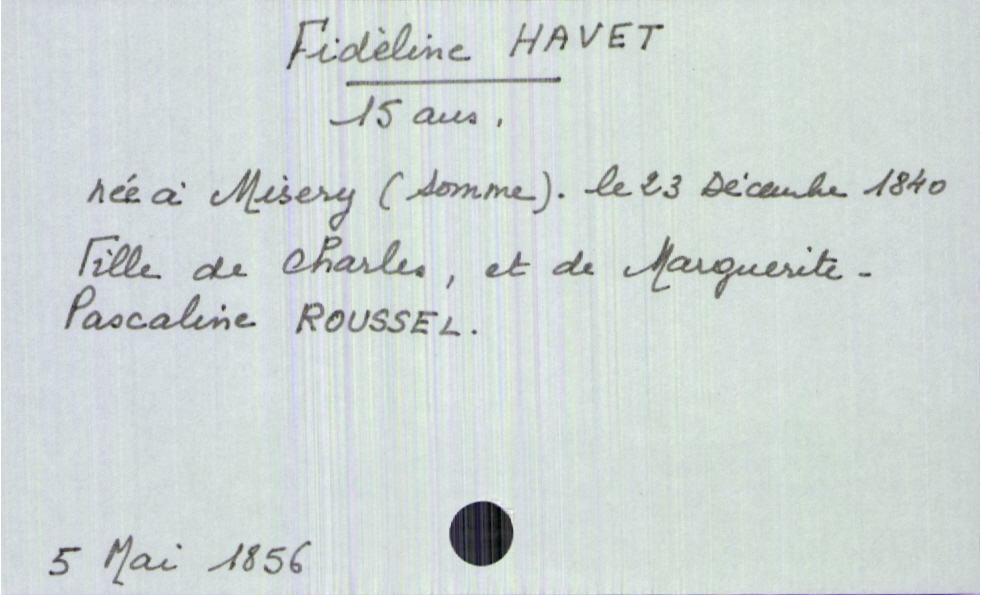 Fidèline HAVET
15 ans.
née à Misery (Somme). le 23 Décembre 1840
Fille de Charles, et de Marguerite-
Pascaline ROUSSEL.
5 Mai 1856